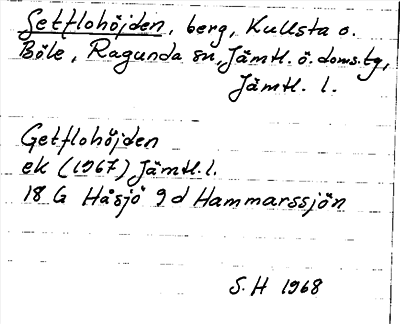 Getflohöjden, berg, Kullsta o.
Böle, Ragunda sn, Jämtl. ö. doms. tg,
Jämtl. l.
Getflohöjden
ek (1967) Jämtl. l.
18 G Håsjö 9 d Hammarssjön
S. H 1968